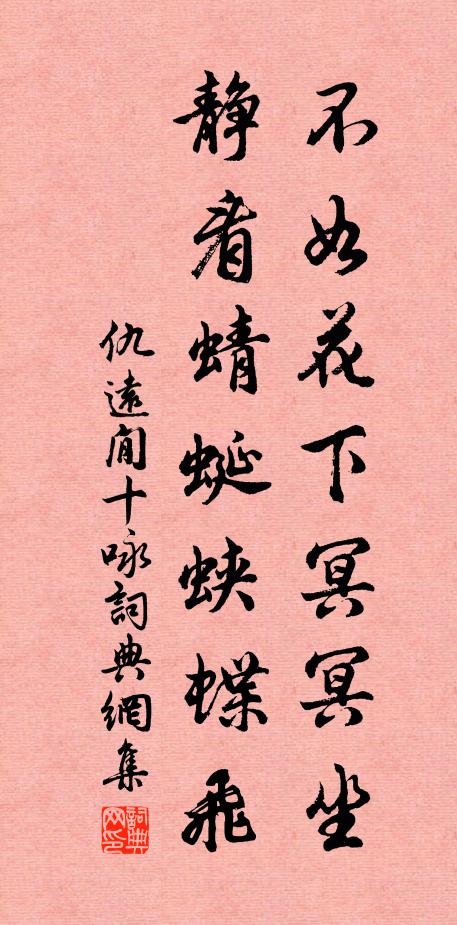 不如花下冥冥坐
静看蜻蜓蛱蝶飛
仇遠閒十咏詞典網集
詞典网印